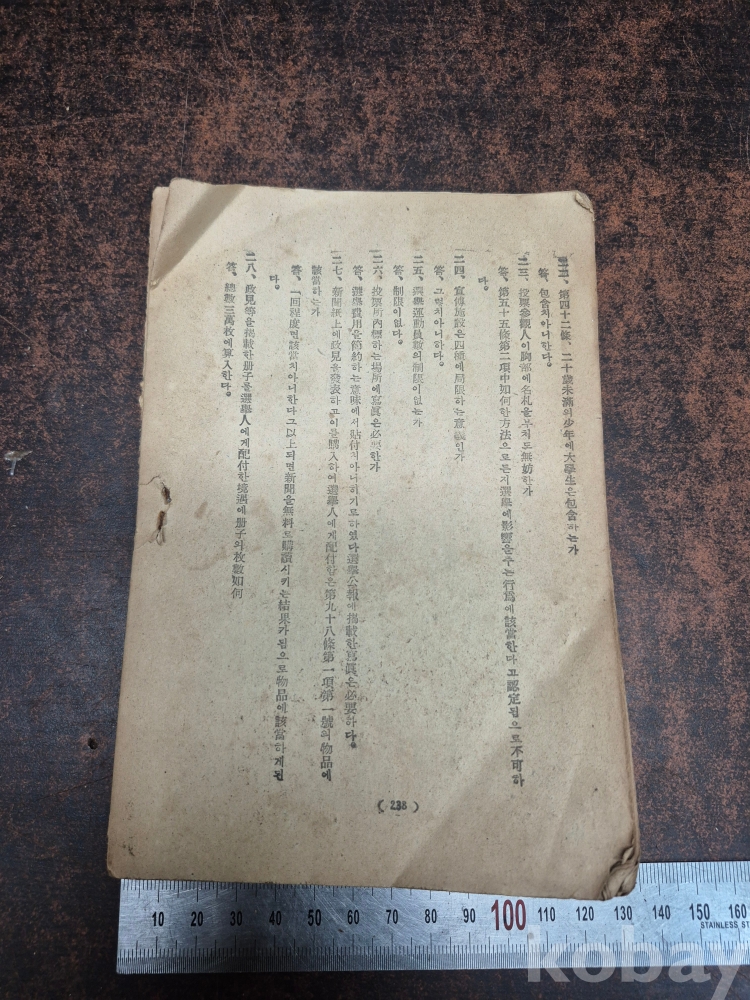 二二、第四十二條、二十歲未滿의少年에大學生은包含하는가
答、包含치아니한다。
二三、投票參觀人이胸部에名札을부치도無妨한가
答、第五十五條第二項中如何한方法으로든지選擧에影響을주는行爲에該當한다고認定됨으로不可하
다。
二四、宣傳施設은四種에局限하는意義인가
答、그렇치아니하다。
二五、選擧運動員數의制限이없는가
答、制限이없다。
二六、投票所內標하는場所에寫眞은必要한가
答、選擧費用을節約하는意味에서貼付치아니하기로하였다選擧公報에揭載한寫眞은必要하다。
二七、新聞紙上에政見을發表하고이를購入하여選擧人에게配付함은第九十八條第一項第一號의物品에
該當하는가
答、一回程度면該當치아니한다그以上되면新聞을無料로購讀시키는結果가됨으로物品에該當하게된
다。
二八、政見等을揭載한册子를選擧人에게配付한境遇에册子의枚數如何
答、總數三萬枚에算入한다。
( 238 )
10 20 30 40 50 60 70 80 90 100 110 120 130 140 150 160
STAINLESS
kobay